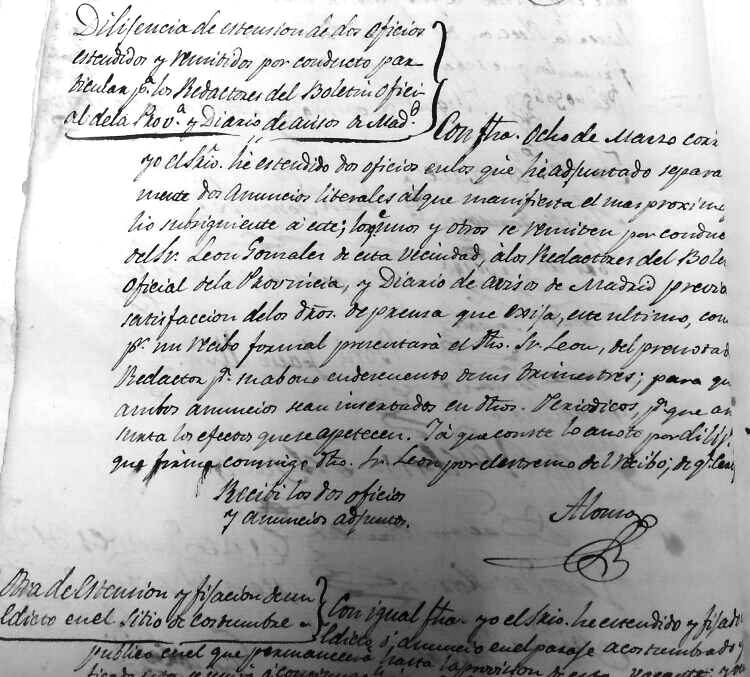 Diligencia de estension de dos oficios
estendidos y remitidos por conducto par-
ticular pª. los Redactores del Boletin Ofici-
al de la Provª. y Diario de avisos de Madª
Con fha. Ocho de Marzo corr
yo el Sriº. he estendido dos oficios en los que hé adjuntado separa
mente dos anuncios liberales al que manifiesta el mas proximo
lio subsiguiente á este; los unos y otros se remiten por conduc
del Sr. Leon Gonzalez de esta vecindad, á los Redactores del Bole
Oficial de la Provincia, y Diario de avisos de Madrid previa
satisfaccion de los dros. de prensa que exija, este ultimo, con
pr. un recibo formal presentará el dho. Sr. Leon, del prenotad
Redactor pª. su abono en descuento de sus trimestres; para qu
ambos anuncios sean insertados en dhos. Periodicos, pª. que
surta los efectos que se apetecen. Y á que conste lo anoto por dilig
que firma conmigo dho. Sr. Leon por el estremo del recibo; de qe.
Recibi los dos oficios
y anuncios adjuntos.
Alonso
Otra de estension y fijacion de un
Edicto en el Sitio de costumbre
Con igual fha. yo el Sriº. he estendido y fijado
Edicto ó anuncio en el paraje acostumbrado y
publico en el que permanecerá hasta la provision de esta vacante; y